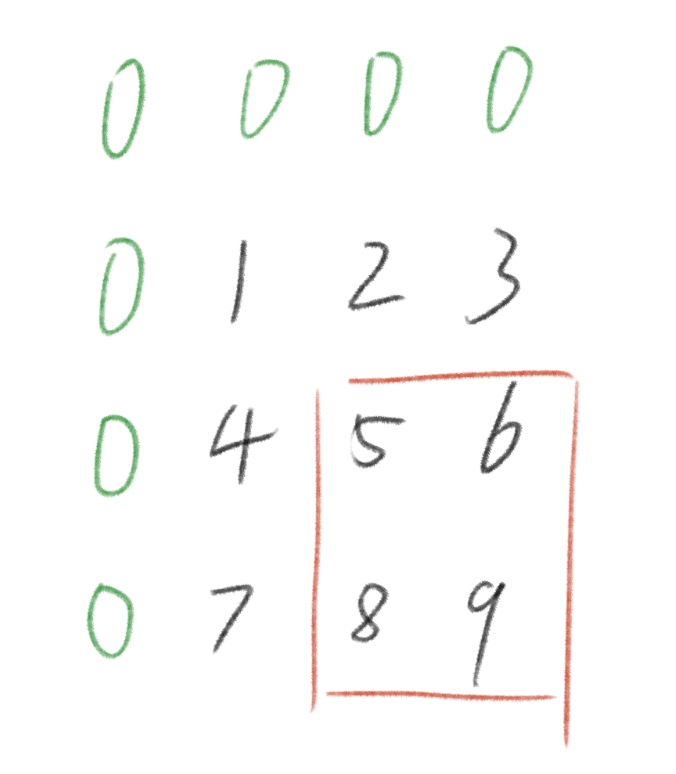 0 0 0 0
0 1 2 3
0 4 5 6
0 7 8 9